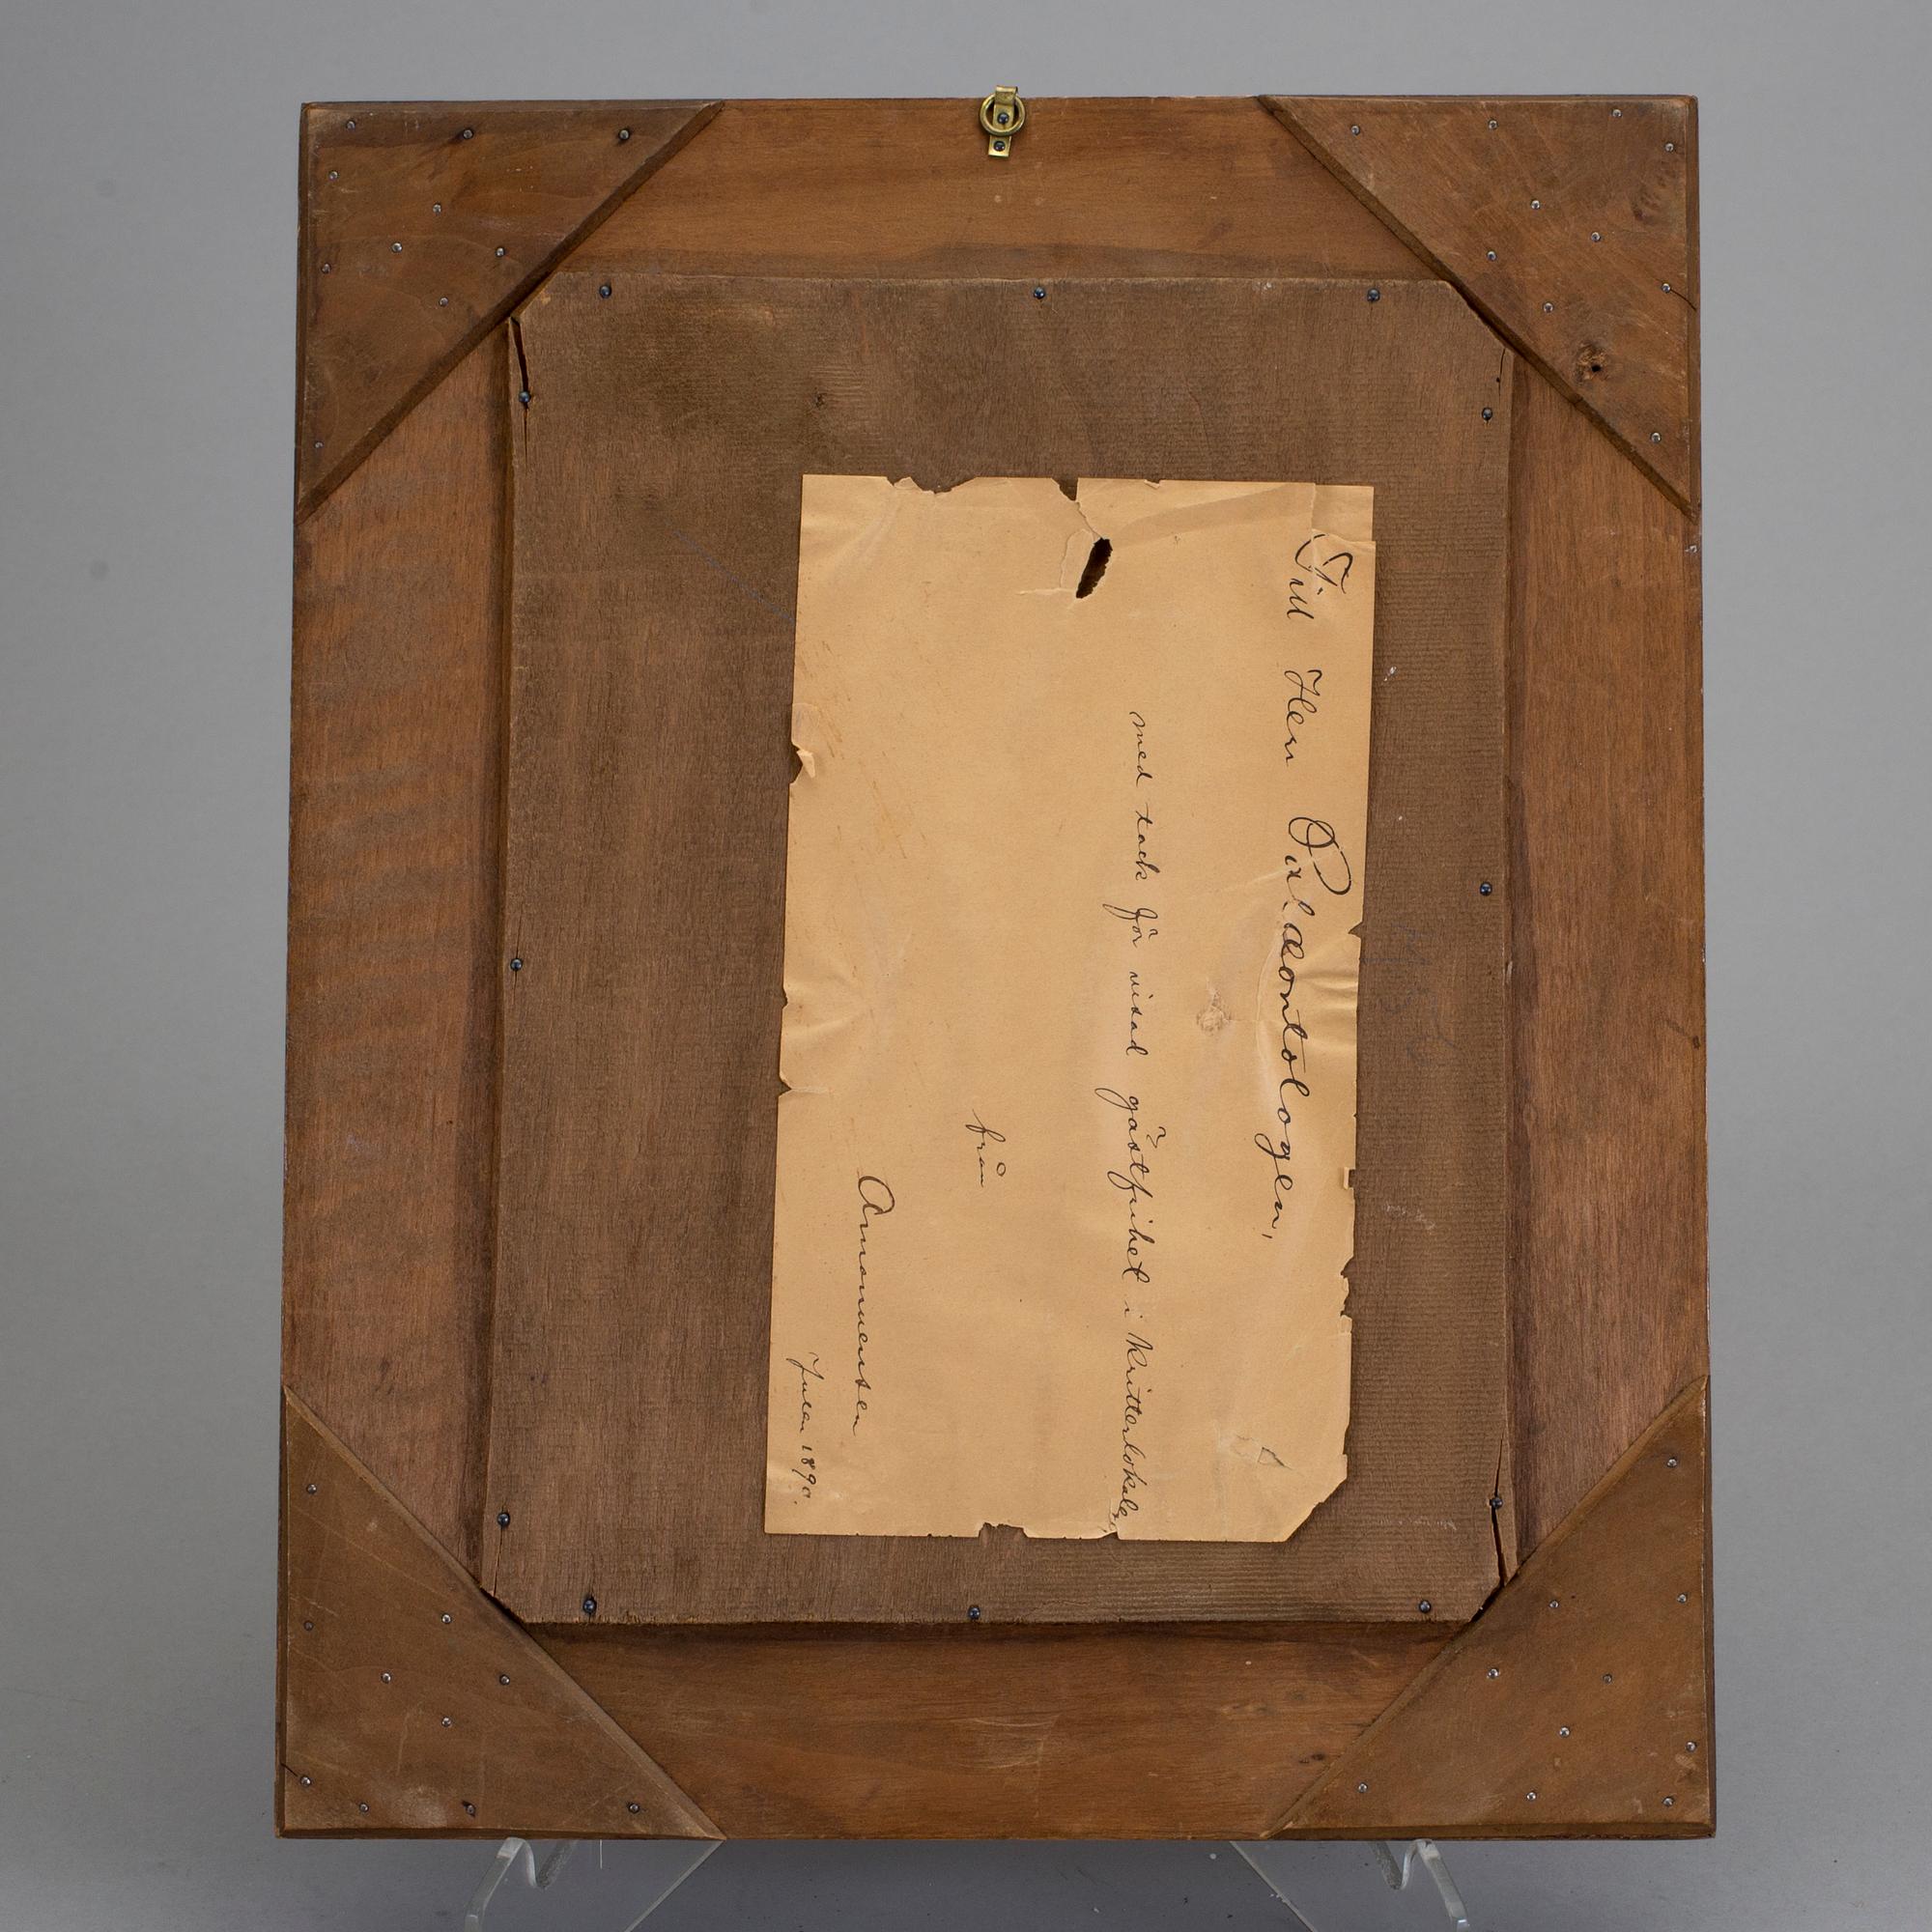 Till Herr Palæontologen,
med tack för visad gästfrihet i Kritterlokalen,
från
Julen 1890.